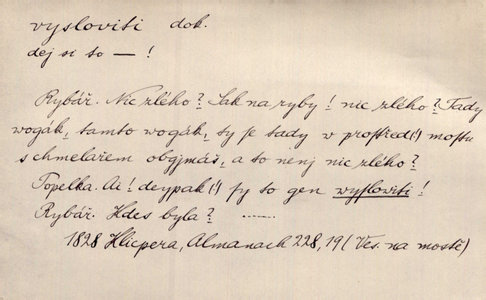 vysloviti dok.
dej si to — !
Rybář. Nic zlého? Jak na ryby! nic zlého? Tady
wogák, tamto wogák, ty se tady w prostřed(!) mostu
s chmelařem obgjmáš, a to nenj nic zlého?
Topelka. Ai! deypak(!) sy to gen wysloviti!
Rybář. Kdes byla? ......
1828 Klicpera, Almanach 228, 19 (Ves. na mostě)